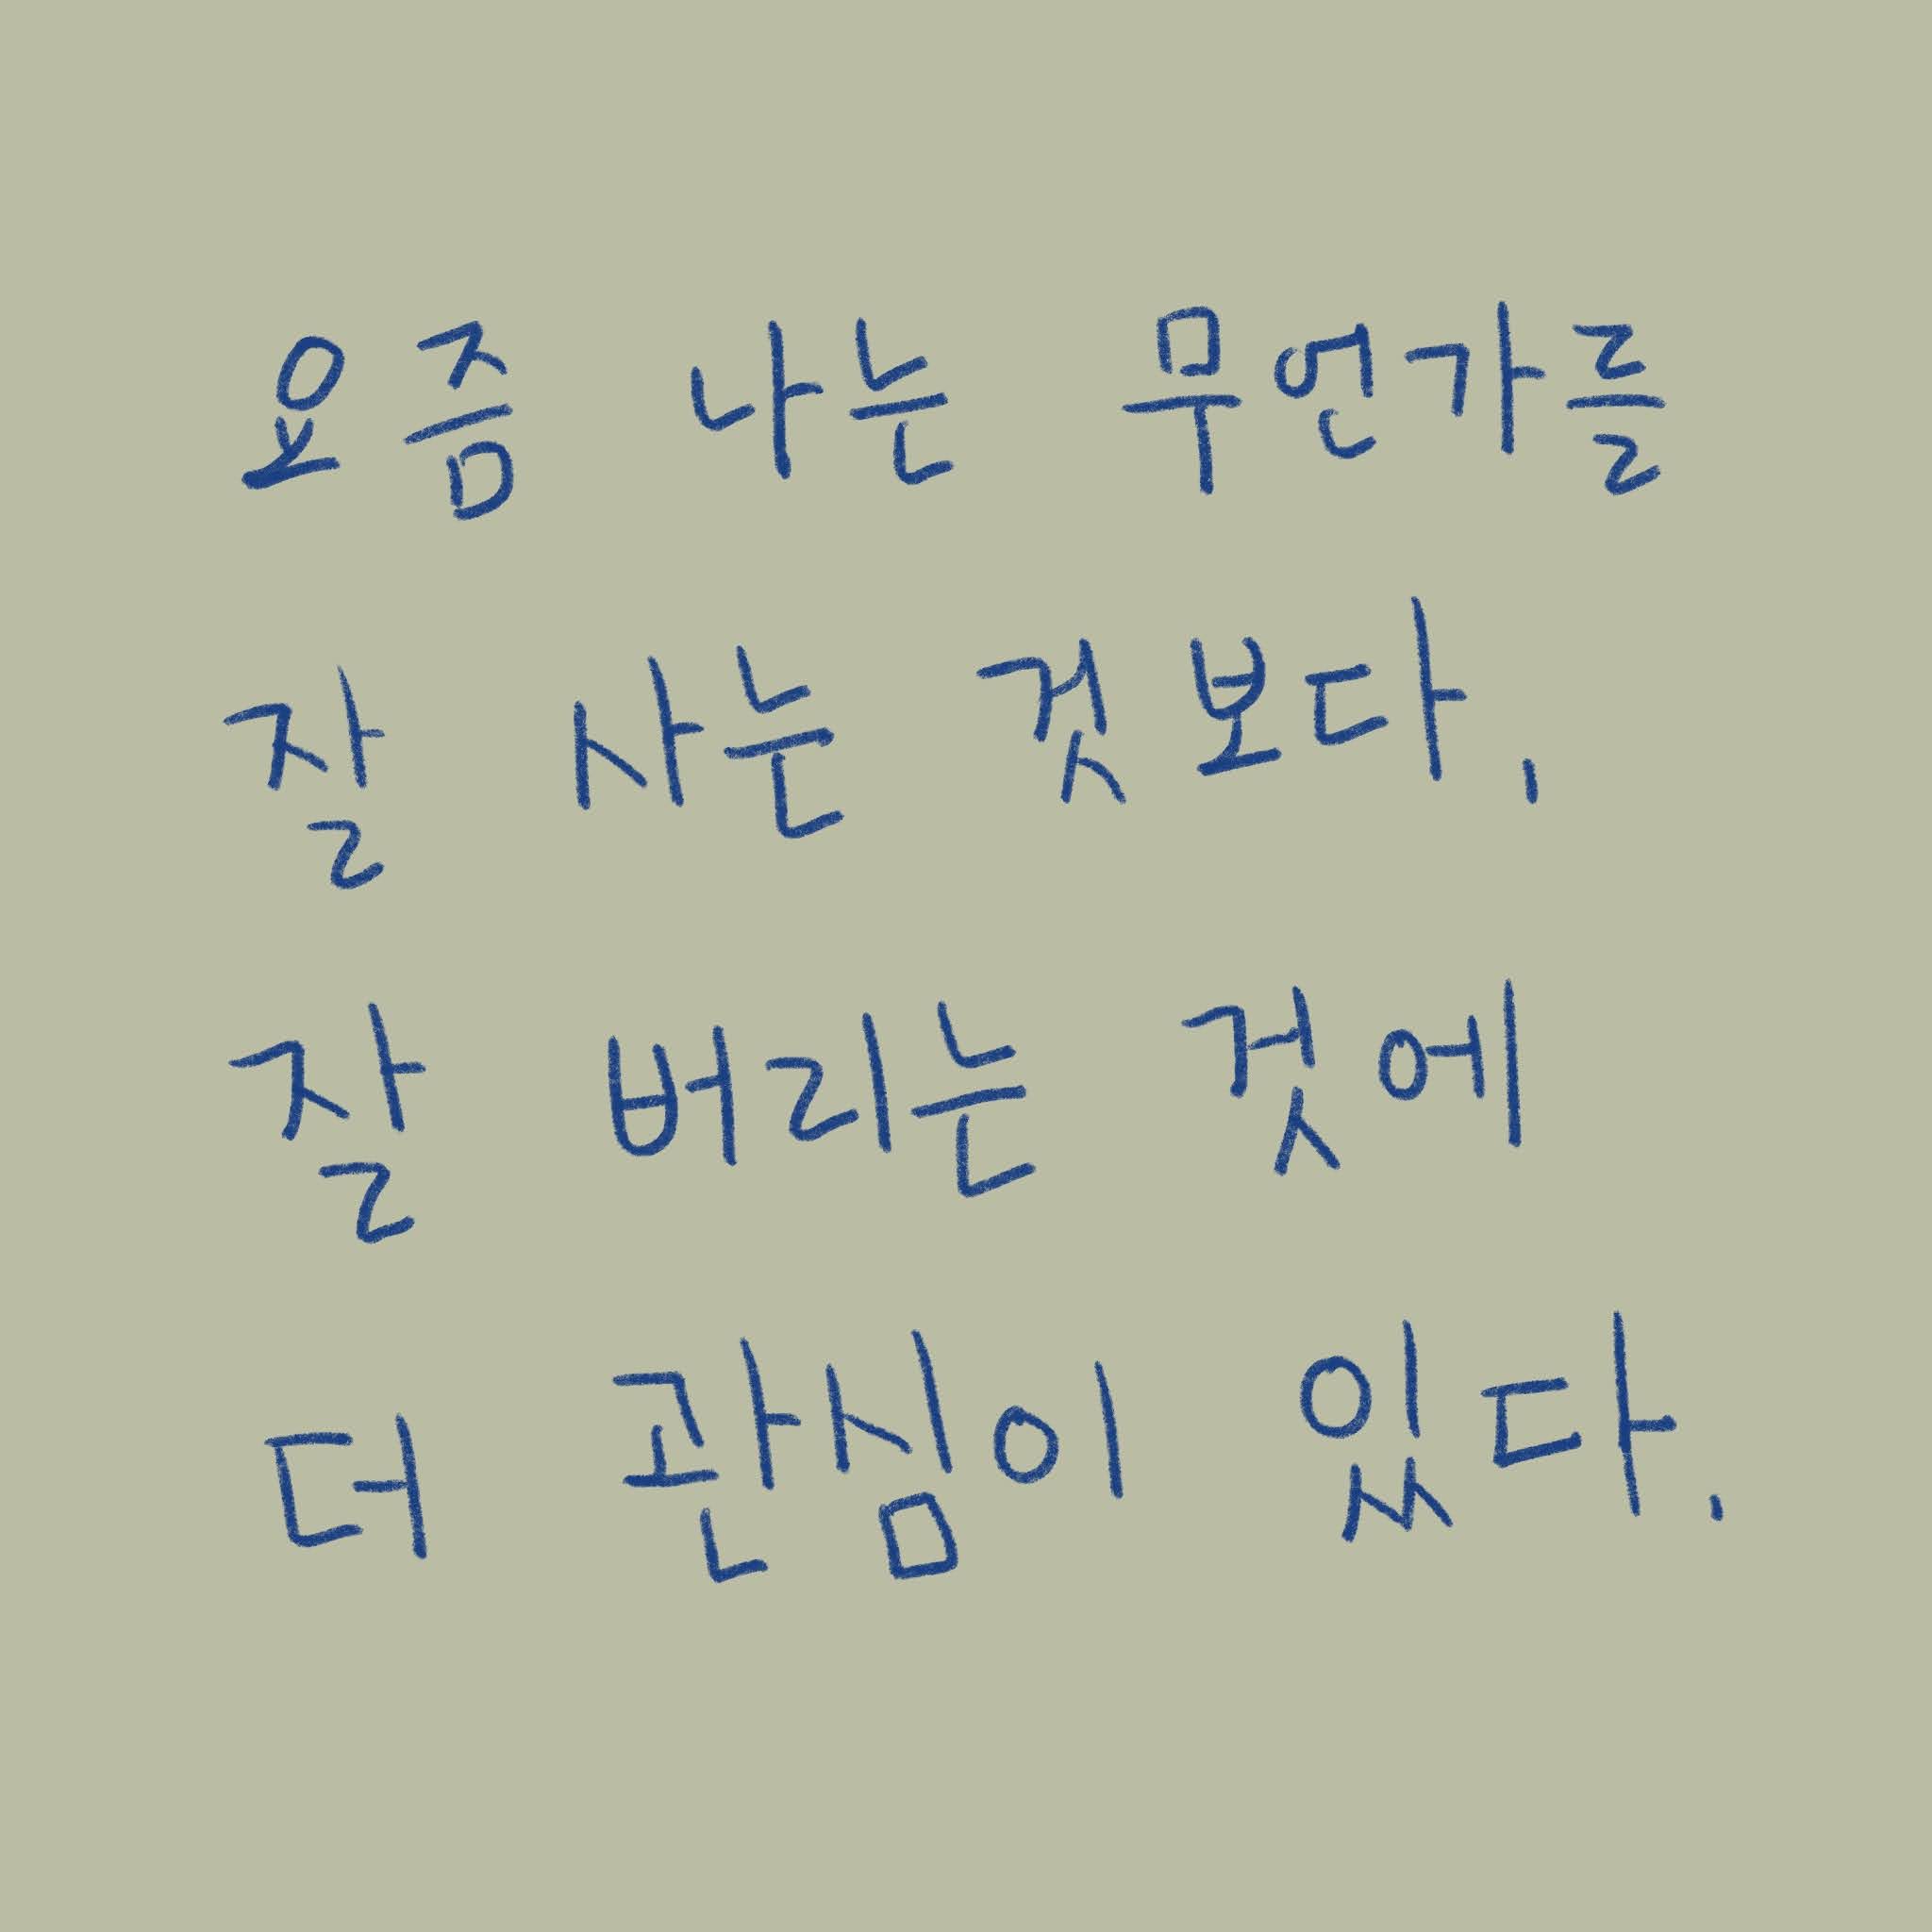 요즘 나는 무언가를
잘 사는 것보다,
잘 버리는 것에
더 관심이 있다.